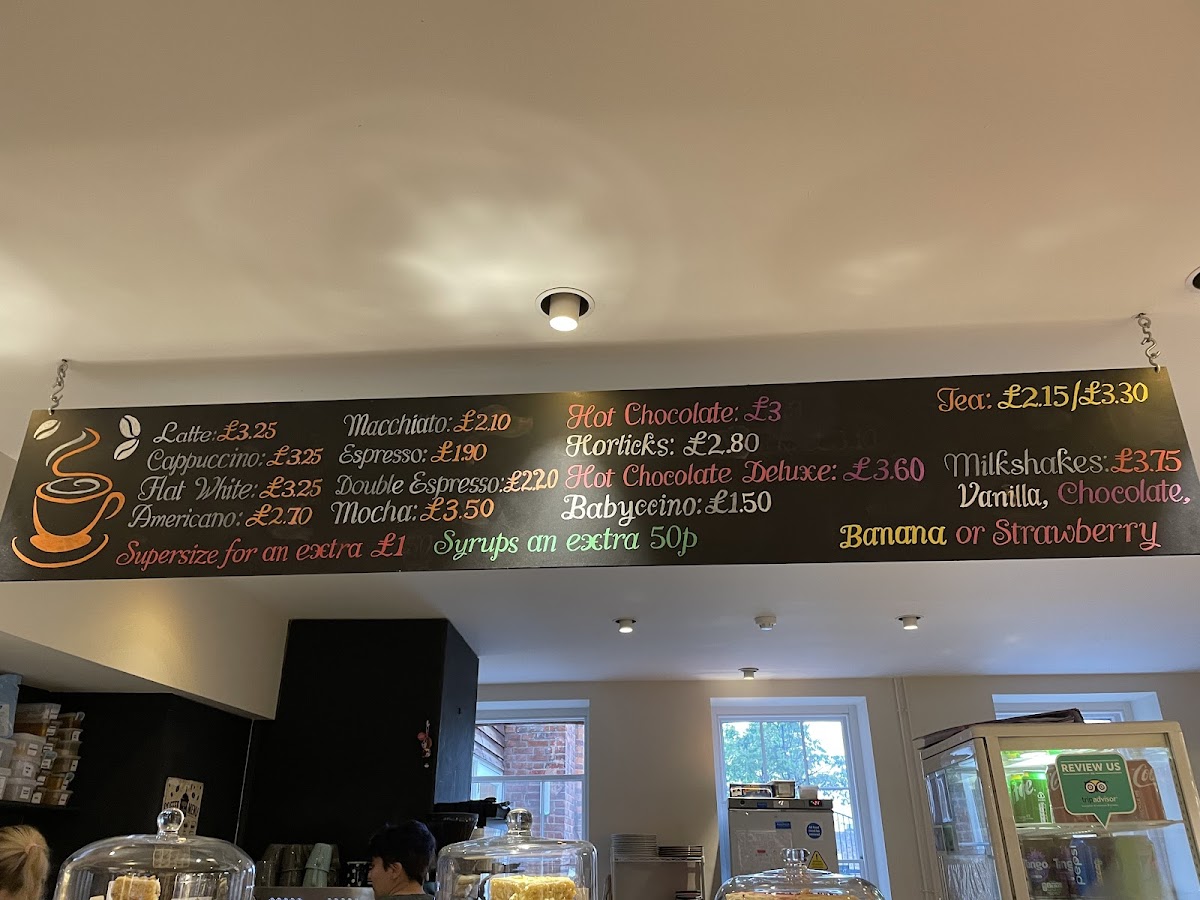 Latte: £3.25
Cappuccino: £3.25
Flat White: £3.25
Americano: £2.70
Macchiato: £2.10
Espresso: £1.90
Double Espresso: £2.20
Mocha: £3.50
Supersize for an extra £1
Syrups an extra 50p
Hot Chocolate: £3
Horlicks: £2.80
Hot Chocolate Deluxe: £3.60
Babyccino: £1.50
Tea: £2.15/£3.30
Milkshakes: £3.75
Vanilla, Chocolate,
Banana or Strawberry
REVIEW US
tripadvisor